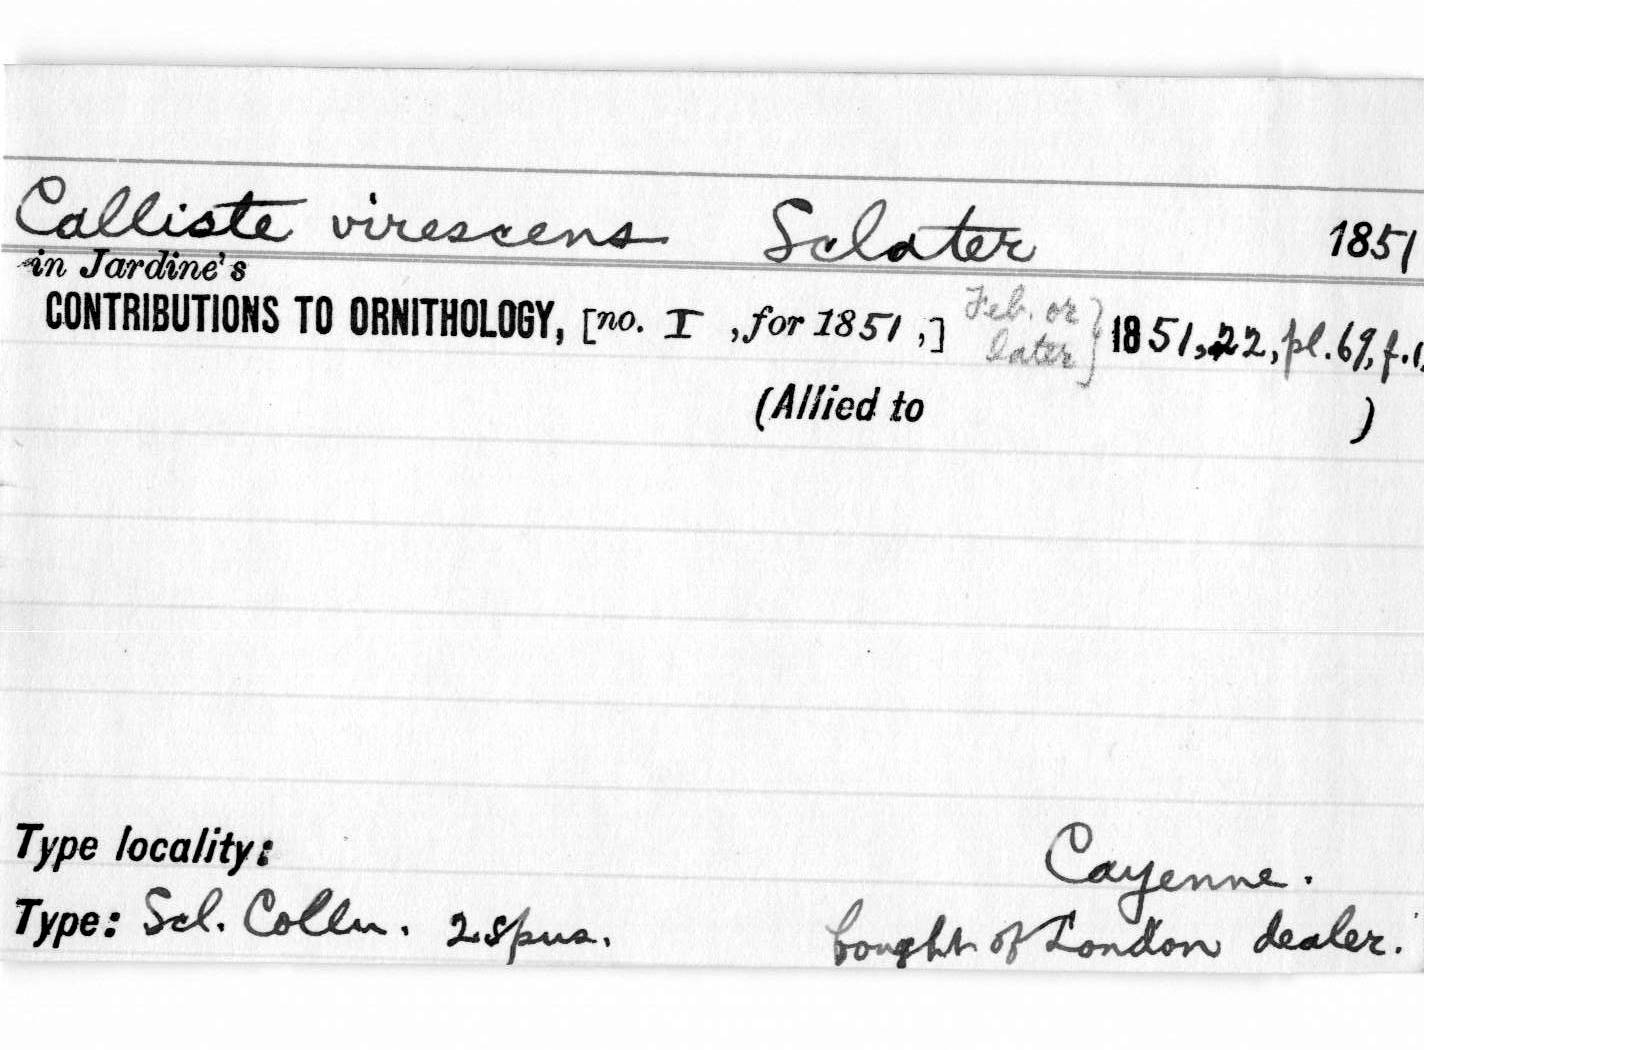 Calliste virescens Sclater 1851
in Jardine's
CONTRIBUTIONS TO ORNITHOLOGY, [no. I ,for 1851 ,] Feb. or later} 1851, 22, pl. 69, f. 1.
(Allied to )
Type locality: Cayenne.
Type: Scl. Colln. 2 spns. bought of London dealer.